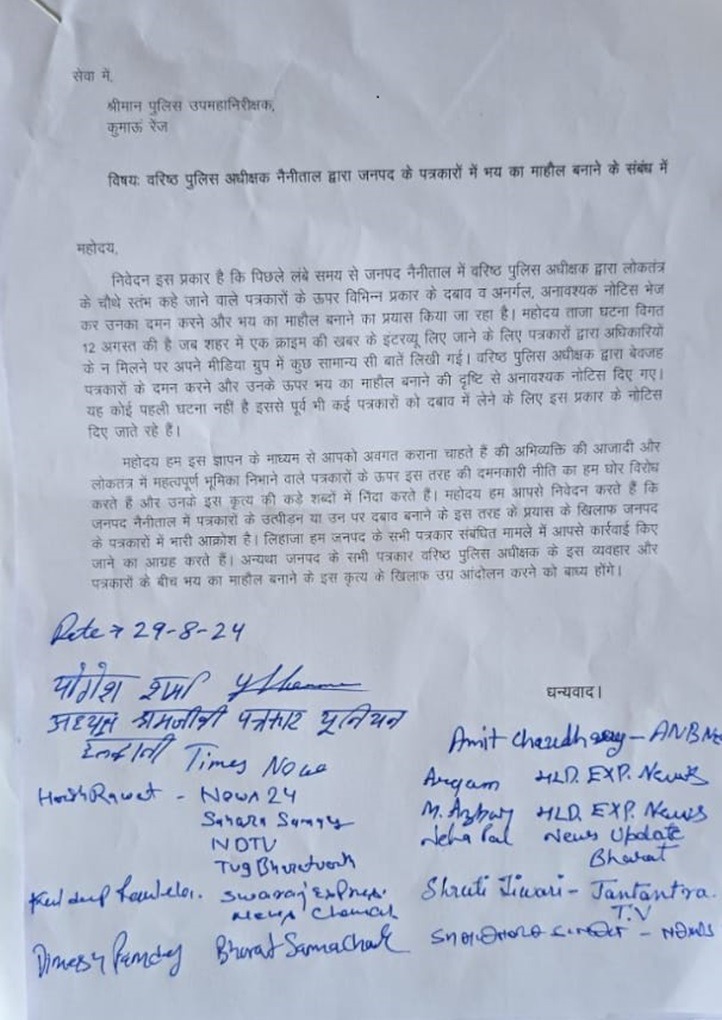 सेवा में,
श्रीमान पुलिस उपमहानिरीक्षक,
कुमाऊं रेंज
विषयः वरिष्ठ पुलिस अधीक्षक नैनीताल द्वारा जनपद के पत्रकारों में भय का माहौल बनाने के संबंध में
महोदय,
निवेदन इस प्रकार है कि पिछले लंबे समय से जनपद नैनीताल में वरिष्ठ पुलिस अधीक्षक द्वारा लोकतंत्र
के चौथे स्तंभ कहे जाने वाले पत्रकारों के ऊपर विभिन्न प्रकार के दबाव व अनर्गल, अनावश्यक नोटिस भेज
कर उनका दमन करने और भय का माहौल बनाने का प्रयास किया जा रहा है। महोदय ताजा घटना विगत
12 अगस्त की है जब शहर में एक क्राइम की खबर के इंटरव्यू लिए जाने के लिए पत्रकारों द्वारा अधिकारियों
के न मिलने पर अपने मीडिया ग्रुप में कुछ सामान्य सी बातें लिखी गई। वरिष्ठ पुलिस अधीक्षक द्वारा बेवजह
पत्रकारों के दमन करने और उनके ऊपर भय का माहौल बनाने की दृष्टि से अनावश्यक नोटिस दिए गए।
यह कोई पहली घटना नहीं है इससे पूर्व भी कई पत्रकारों को दबाव में लेने के लिए इस प्रकार के नोटिस
दिए जाते रहे हैं।
महोदय हम इस ज्ञापन के माध्यम से आपको अवगत कराना चाहते हैं की अभिव्यक्ति की आजादी और
लोकतंत्र में महत्वपूर्ण भूमिका निभाने वाले पत्रकारों के ऊपर इस तरह की दमनकारी नीति का हम घोर विरोध
करते हैं और उनके इस कृत्य की कडे शब्दों में निंदा करते हैं। महोदय हम आपसे निवेदन करते हैं कि
जनपद नैनीताल में पत्रकारों के उत्पीड़न या उन पर दबाव बनाने के इस तरह के प्रयास के खिलाफ जनपद
के पत्रकारों में भारी आक्रोश है। लिहाजा हम जनपद के सभी पत्रकार संबंधित मामले में आपसे कार्रवाई किए
जाने का आग्रह करते हैं। अन्यथा जनपद के सभी पत्रकार वरिष्ठ पुलिस अधीक्षक के इस व्यवहार और
पत्रकारों के बीच भय का माहौल बनाने के इस कृत्य के खिलाफ उग्र आंदोलन करने को बाध्य होंगे।
Date → 29-8-24
योगेश शर्मा
अध्यक्ष श्रमजीवी पत्रकार यूनियन
हल्द्वानी Times Now
Harish Rawat - News 24
Sahara Samay
NDTV
TV9 Bharatvarsh
Kuldeep swaraj Express
News Channel
Dinesh Pandey Bharat Samachar
धन्यवाद।
Amit Chaudhary - ANB
HLD. EXP. News
M. Azhar HLD. EXP. News
Neha Pal News Update
Bharat
Shruti Tiwari - Jantantra
T.V
- News